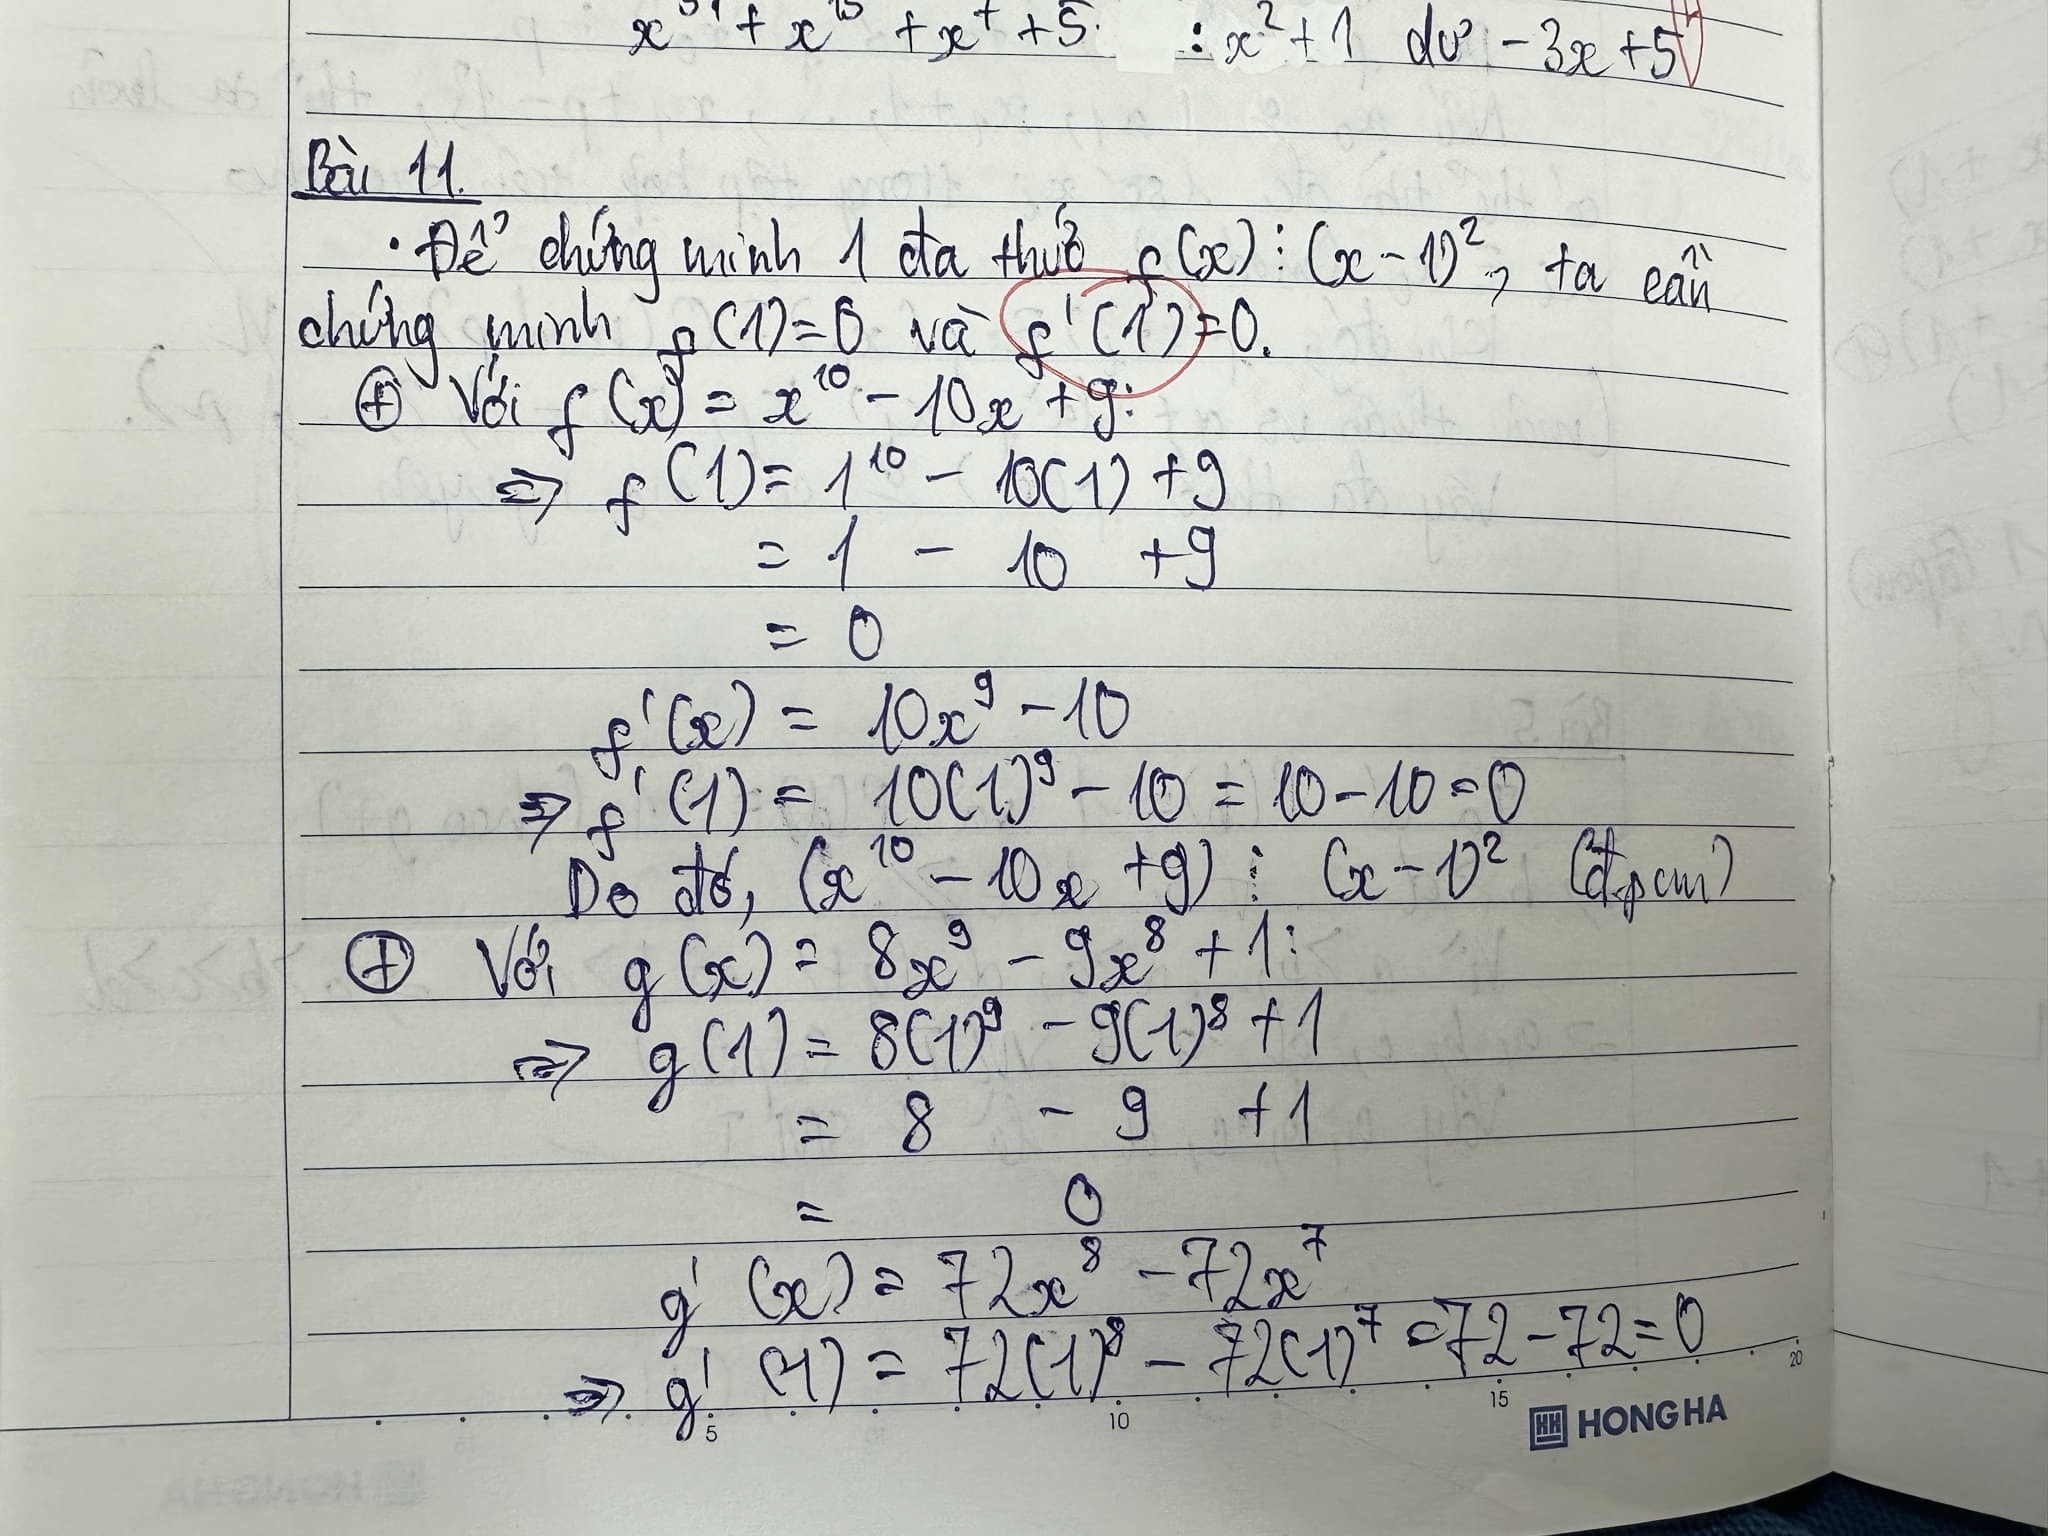 + x + x⁷ + 5 : x² + 1 dư -3x + 5
Bài 11.
• Để chứng minh 1 đa thức f(x) ⋮ (x - 1)², ta cần
chứng minh f(1) = 0 và f'(1) = 0.
⊕ Với f(x) = x¹⁰ - 10x + 9:
⇒ f(1) = 1¹⁰ - 10(1) + 9
= 1 - 10 + 9
= 0
f'(x) = 10x⁹ - 10
⇒ f'(1) = 10(1)⁹ - 10 = 10 - 10 = 0
Do đó, (x¹⁰ - 10x + 9) ⋮ (x - 1)² (đpcm)
⊕ Với g(x) = 8x⁹ - 9x⁸ + 1:
⇒ g(1) = 8(1)⁹ - 9(1)⁸ + 1
= 8 - 9 + 1
= 0
g'(x) = 72x⁸ - 72x⁷
⇒ g'(1) = 72(1)⁸ - 72(1)⁷ = 72 - 72 = 0
5 10 15 20
HONG HA